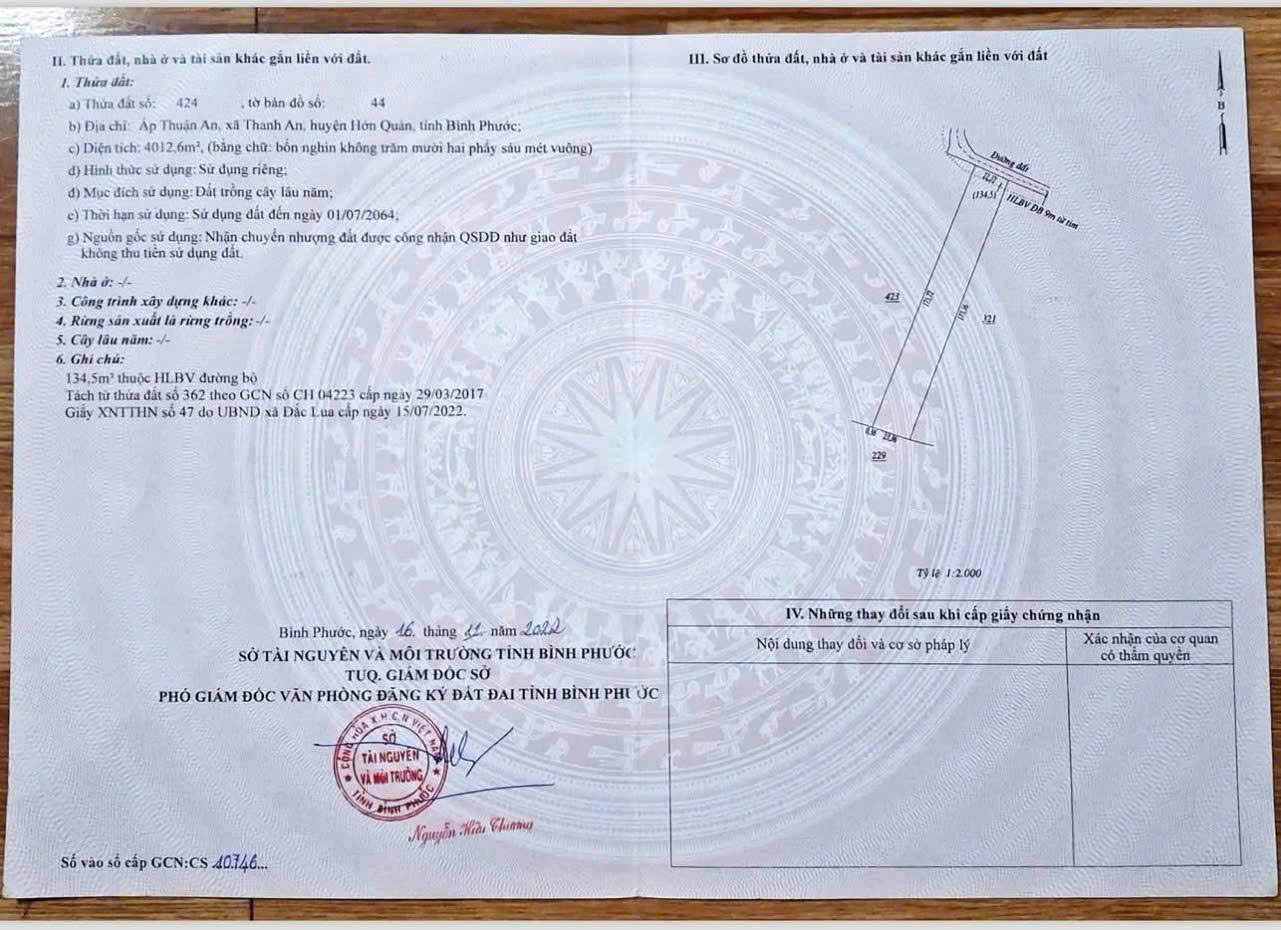 II. Thửa đất, nhà ở và tài sản khác gắn liền với đất.
1. Thửa đất:
a) Thửa đất số: 424 , tờ bản đồ số: 44
b) Địa chỉ: Ấp Thuận An, xã Thanh An, huyện Hớn Quản, tỉnh Bình Phước;
c) Diện tích: 4012,6m², (bằng chữ: bốn nghìn không trăm mười hai phẩy sáu mét vuông)
d) Hình thức sử dụng: Sử dụng riêng;
đ) Mục đích sử dụng: Đất trồng cây lâu năm;
e) Thời hạn sử dụng: Sử dụng đất đến ngày 01/07/2064;
g) Nguồn gốc sử dụng: Nhận chuyển nhượng đất được công nhận QSDĐ như giao đất
không thu tiền sử dụng đất.
2. Nhà ở: -/-
3. Công trình xây dựng khác: -/-
4. Rừng sản xuất là rừng trồng: -/-
5. Cây lâu năm: -/-
6. Ghi chú:
134,5m² thuộc HLBV đường bộ
Tách từ thửa đất số 362 theo GCN số CH 04223 cấp ngày 29/03/2017
Giấy XNTTHN số 47 do UBND xã Đắc Lua cấp ngày 15/07/2022.
Bình Phước, ngày 16 tháng 11 năm 2022
SỞ TÀI NGUYÊN VÀ MÔI TRƯỜNG TỈNH BÌNH PHƯỚC
TUQ. GIÁM ĐỐC SỞ
PHÓ GIÁM ĐỐC VĂN PHÒNG ĐĂNG KÝ ĐẤT ĐAI TỈNH BÌNH PHƯỚC
CỘNG HÒA X.H.C.N VIỆT NAM
SỞ
TÀI NGUYÊN
VÀ MÔI TRƯỜNG
TỈNH BÌNH PHƯỚC
Nguyễn Hữu Thương
Số vào sổ cấp GCN:CS 10746...
III. Sơ đồ thửa đất, nhà ở và tài sản khác gắn liền với đất
B
Đường đất
(134.5)
HLBV ĐB 9m từ tim
423
321
229
Tỷ lệ 1:2.000
IV. Những thay đổi sau khi cấp giấy chứng nhận
Nội dung thay đổi và cơ sở pháp lý
Xác nhận của cơ quan
có thẩm quyền